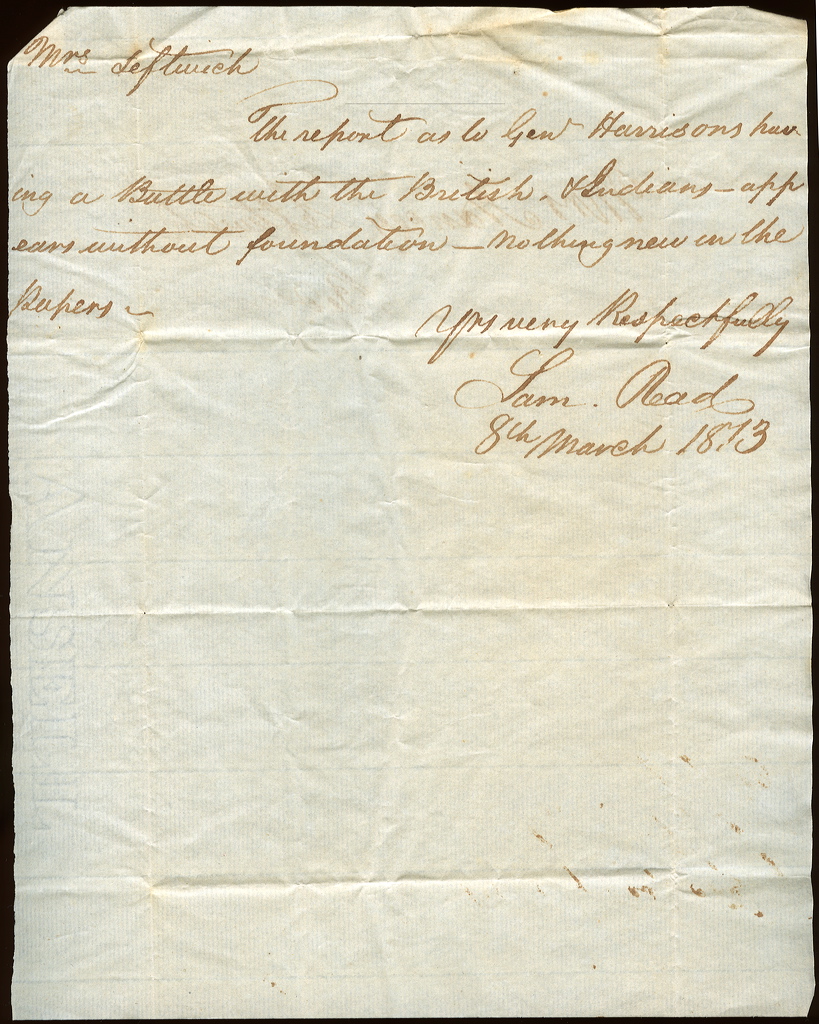 Mrs Leftwich
The report as to Genl Harrisons hav
ing a Battle with the British, & Indians – app
ears without foundation – nothing new in the
Papers –
Yrs very Respectfully
Sam. Read
8th March 1813